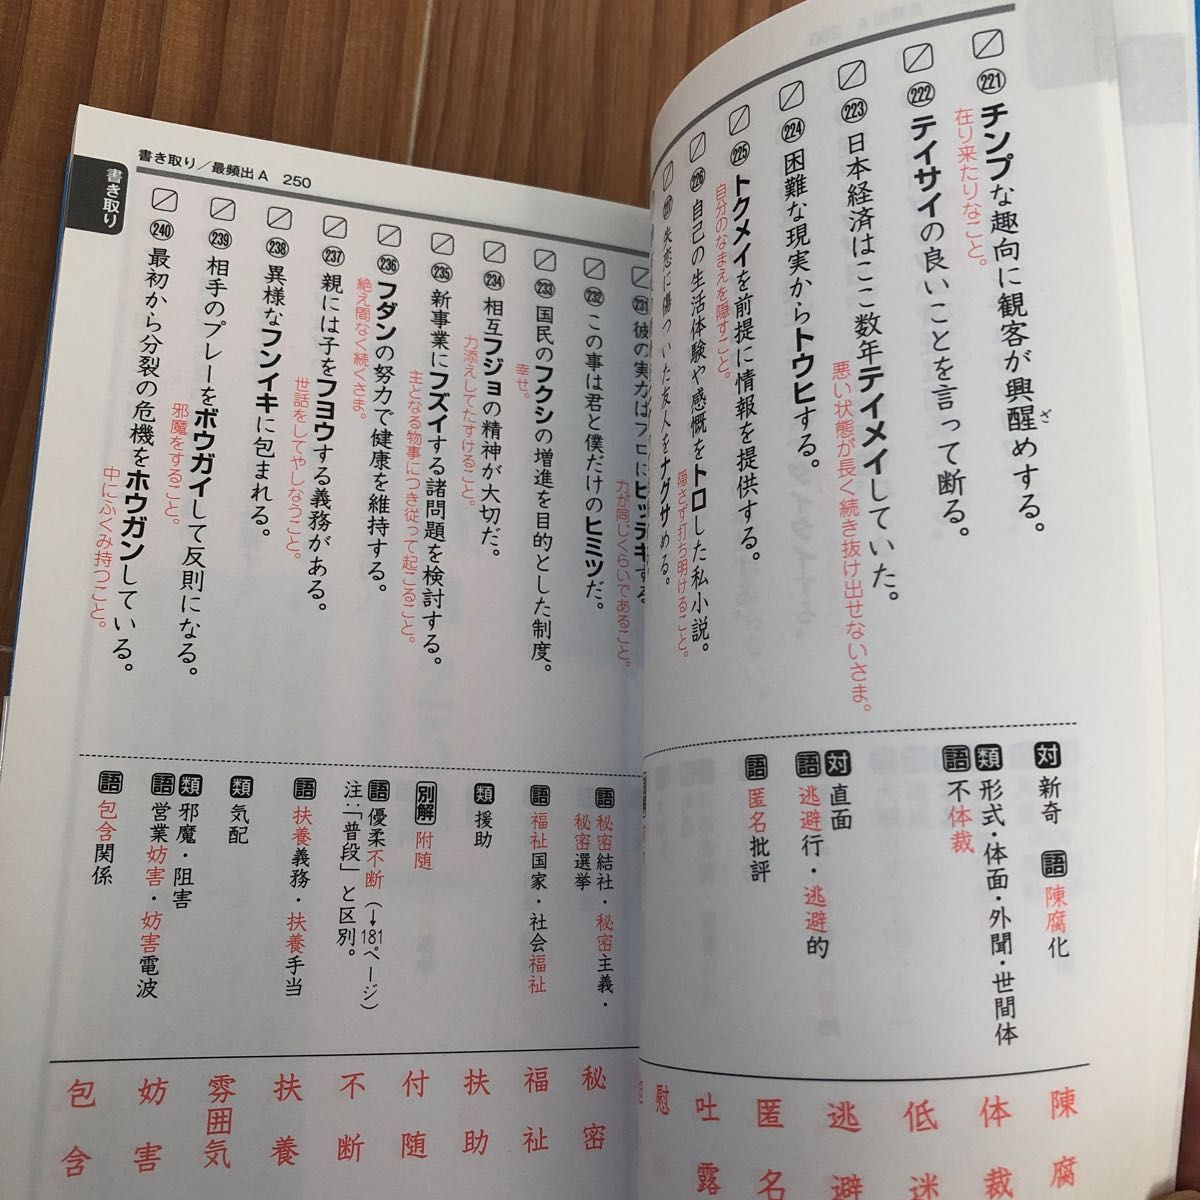 221 チンプな趣向に観客が興醒めする。
ざ
在り来たりなこと。
対 新奇 語 陳腐化
陳腐
222 テイサイの良いことを言って断る。
類 形式・体面・外聞・世間体
語 不体裁
体裁
223 日本経済はここ数年テイメイしていた。
悪い状態が長く続き抜け出せないさま。
低迷
224 困難な現実からトウヒする。
対 直面
語 逃避行・逃避的
逃避
225 トクメイを前提に情報を提供する。
自分のなまえを隠すこと。
語 匿名批評
匿名
226 自己の生活体験や感慨をトロした私小説。
隠さず打ち明けること。
吐露
227 失恋に傷ついた友人をナグサめる。
慰
書き取り/最頻出A 250
書き取り
231 彼の実力はプロにヒッテキする。
力が同じくらいであること。
232 この事は君と僕だけのヒミツだ。
語 秘密結社・秘密主義・
秘密選挙
秘密
233 国民のフクシの増進を目的とした制度。
幸せ。
語 福祉国家・社会福祉
福祉
234 相互フジョの精神が大切だ。
力添えしてたすけること。
類 援助
扶助
235 新事業にフズイする諸問題を検討する。
主となる物事につき従って起こること。
別解 附随
付随
236 フダンの努力で健康を維持する。
絶え間なく続くさま。
語 優柔不断(→181ページ)
注:「普段」と区別。
不断
237 親には子をフヨウする義務がある。
世話をしてやしなうこと。
語 扶養義務・扶養手当
扶養
238 異様なフンイキに包まれる。
類 気配
雰囲気
239 相手のプレーをボウガイして反則になる。
邪魔をすること。
類 邪魔・阻害
語 営業妨害・妨害電波
妨害
240 最初から分裂の危機をホウガンしている。
中にふくみ持つこと。
語 包含関係
包含